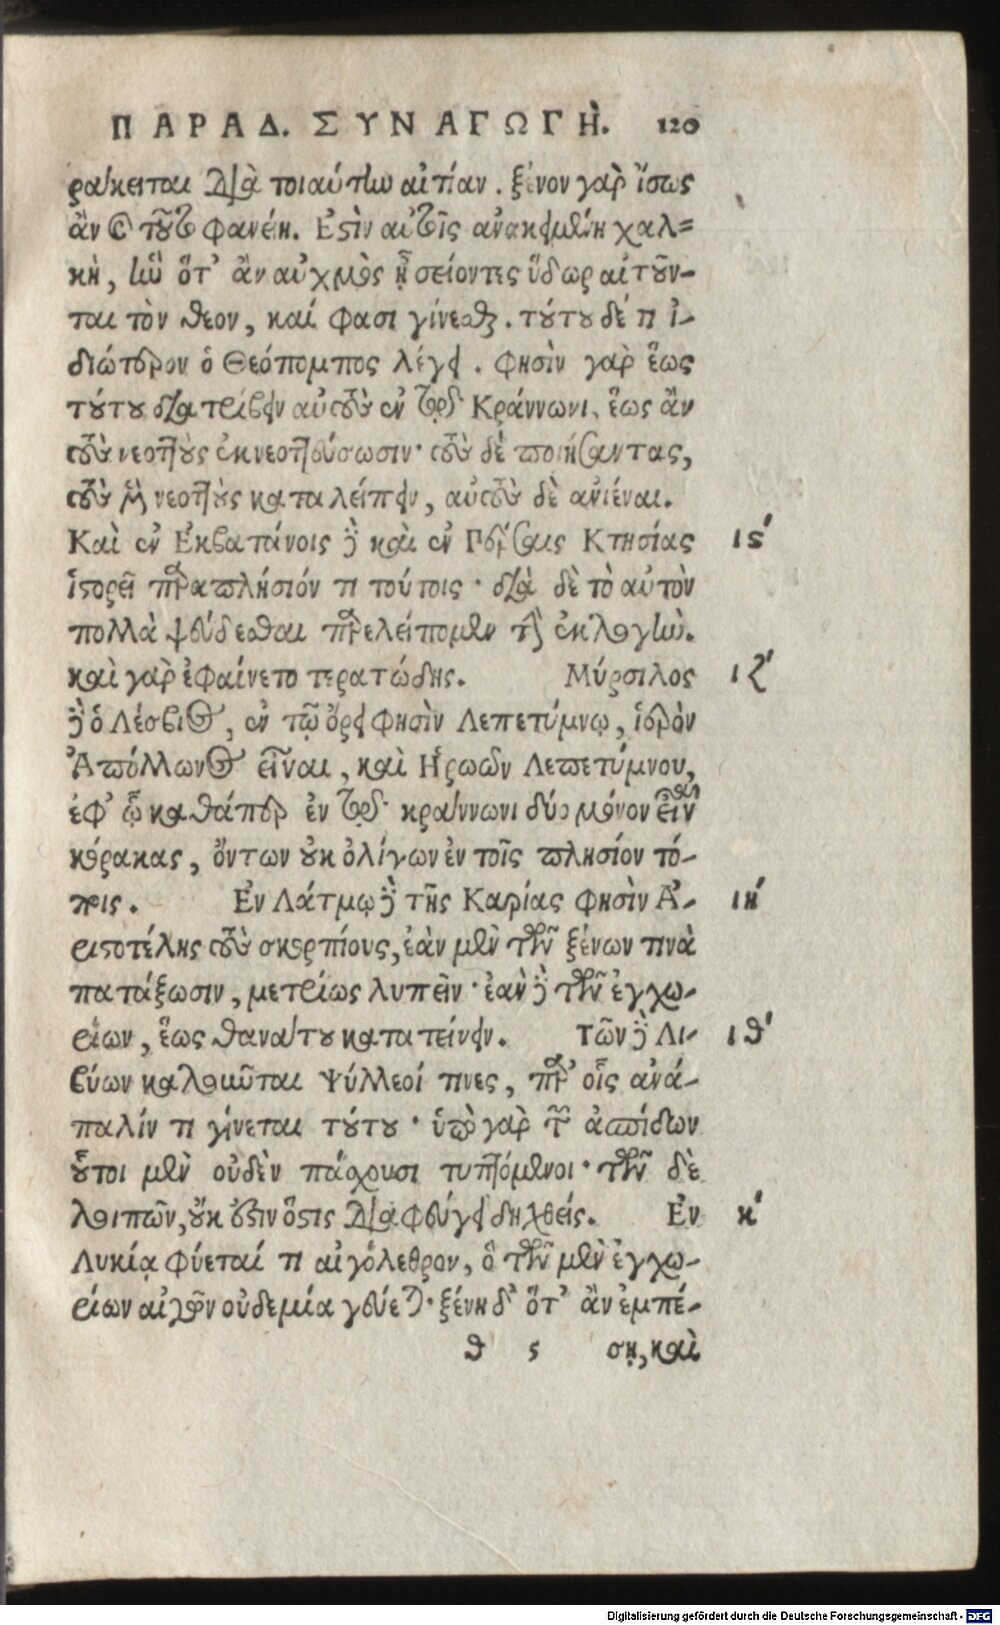 ΠΑΡΑΔ. ΣΥΝΑΓΩΓΗ. 120
ράκειται διὰ τοιαύτην αἰτίαν. ξένον γὰρ ἴσως
ἂν καὶ τοῦτο φανείη. Ἐστὶν αὐτοῖς ἀνακειμένη χαλ-
κῆ, ἣν ὅτ' ἂν αὐχμὸς ᾖ σείοντες ὕδωρ αἰτοῦν-
ται τὸν θεον, καί φασι γίνεσθαι. τούτου δέ τι ἰ-
διώτερον ὁ Θεόπομπος λέγει. φησὶν γὰρ ἕως
τούτου διατρίβειν αὐτοὺς ἐν τῷ Κράννωνι, ἕως ἂν
τοὺς νεοττοὺς ἐκνεοττεύσωσιν· τοῦτο δὲ ποιήσαντας,
τοὺς μὲν νεοττοὺς καταλείπειν, αὐτοὺς δὲ ἀνιέναι.
Καὶ ἐν Ἐκβατάνοις δὲ καὶ ἐν Πέρσαις Κτησίας ις'
ἱστορεῖ παραπλήσιόν τι τούτοις· διὰ δὲ τὸ αὐτὸν
πολλὰ ψεύδεσθαι παρελείπομεν τὴν ἐκλογήν.
καὶ γὰρ ἐφαίνετο τερατώδης. Μύρσιλος ιζ'
δὲ ὁ Λέσβιος, ἐν τῷ ὄρει φησὶν Λεπετύμνῳ, ἱερὸν
Ἀπόλλωνος εἶναι, καὶ Ἡρῶον Λεπετύμνου,
ἐφ' ᾧ καθάπερ ἐν τῷ κράννωνι δύο μόνον εἶναι
κόρακας, ὄντων οὐκ ὀλίγων ἐν τοῖς πλησίον τό-
ποις. Ἐν Λάτμῳ δὲ τῆς Καρίας φησὶν Ἀ- ιή
ριστοτέλης τοὺς σκορπίους, ἐὰν μὲν τῶν ξένων τινὰ
πατάξωσιν, μετρίως λυπεῖν· ἐὰν δὲ τῶν ἐγχω-
ρίων, ἕως θανάτου κατατείνειν. Τῶν δὲ Λι- ιθ'
βύων καλοῦνται Ψύλλεοί τινες, παρ' οἷς ἀνά-
παλίν τι γίνεται τούτου· ὑπὸ γὰρ τῶν ἀσπίδων
οὗτοι μὲν οὐδὲν πάσχουσι τυπτόμενοι· τῶν δὲ
λοιπῶν, οὐκ ἔστιν ὅστις διαφεύγει δηχθείς. Ἐν κ'
Λυκίᾳ φύεταί τι αἰγόλεθρον, ὃ τῶν μὲν ἐγχω-
ρίων αἰγῶν οὐδεμία γεύεται· ξένη δ' ὅτ' ἂν ἐμπέ-
θ ς σῃ, καὶ
Digitalisierung gefördert durch die Deutsche Forschungsgemeinschaft - DFG